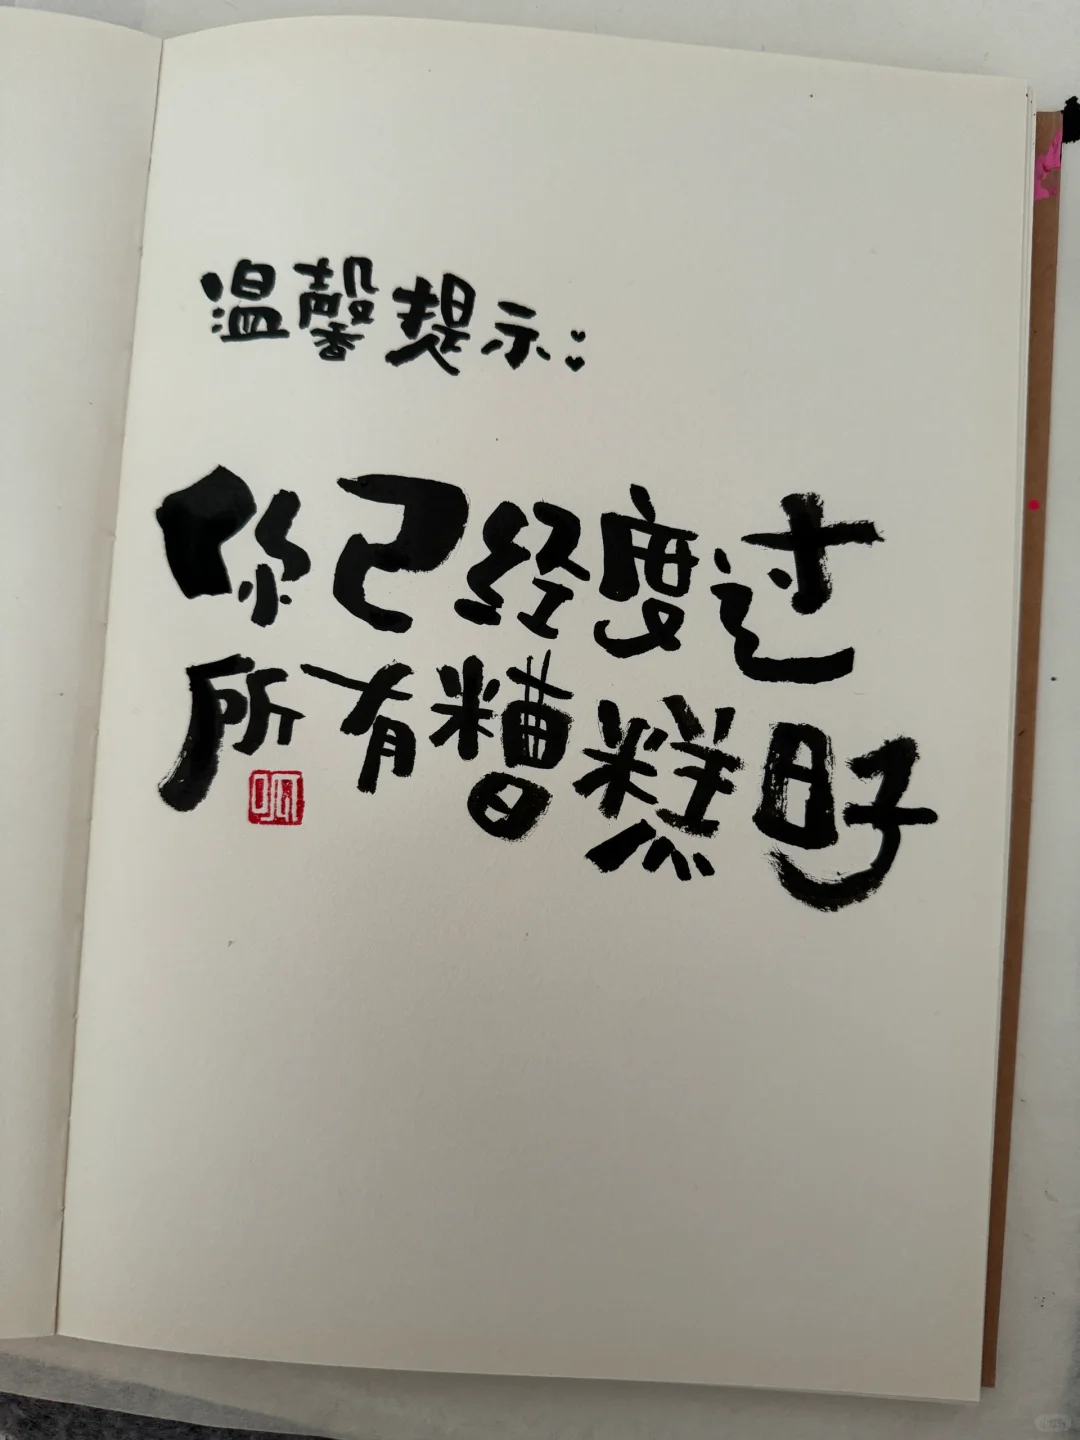 温馨提示:
你已经度过
所有糟糕日子